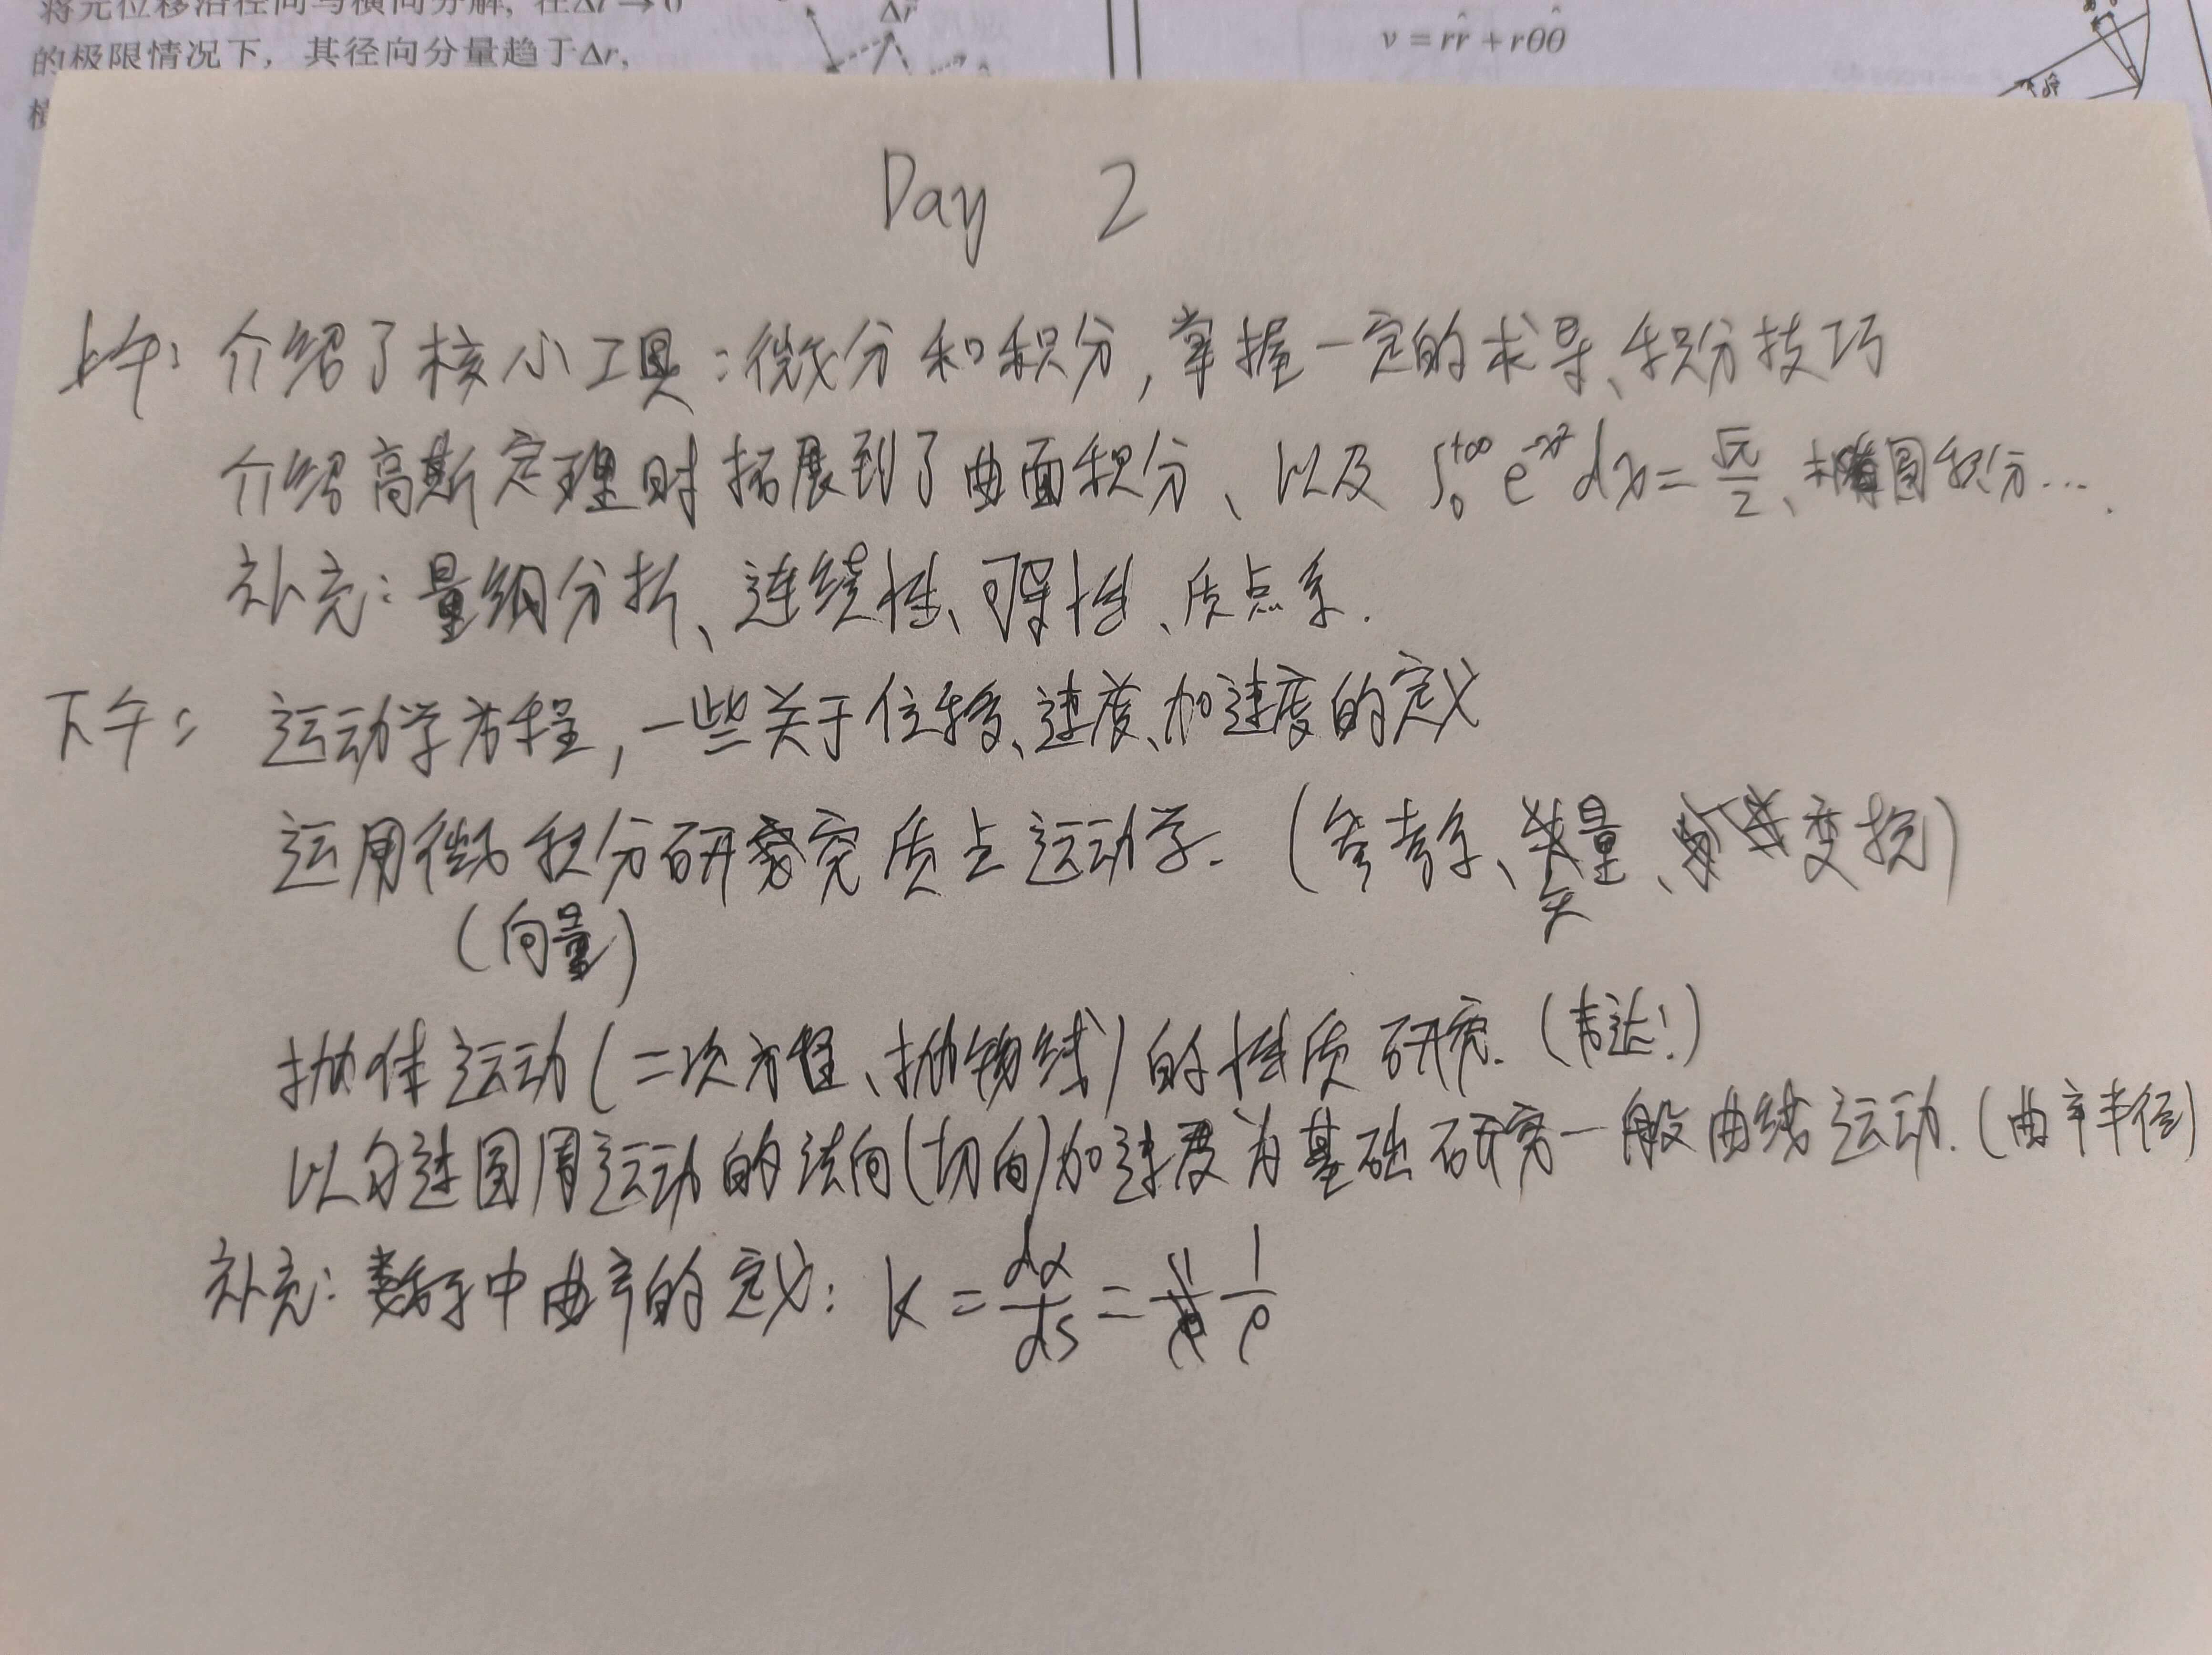 将元位移沿径向与横向分解, 在Δt→0
的极限情况下, 其径向分量趋于Δr,
Δr
v = ṙr̂ + rθ̇θ̂
Day 2
上午: 介绍了核心工具: 微分和积分, 掌握一定的求导、积分技巧
介绍高斯定理时拓展到了曲面积分、以及 ∫₀^{+∞} e^{-x²}dx = √π/2、椭圆积分….
补充: 量纲分析、连续性、可导性、质点系.
下午: 运动学方程, 一些关于位移、速度、加速度的定义
运用微积分研究质点运动学. (参考系、矢量、变换)
(向量)
抛体运动(二次方程、抛物线)的性质研究. (表达!)
以匀速圆周运动的法向(切向)加速度为基础研究一般曲线运动. (曲率半径)
补充: 数学中曲率的定义: K = dα/ds = 1/ρ